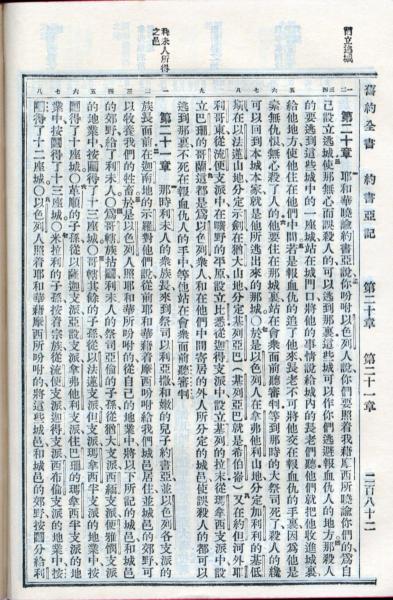 舊約全書 約書亞記 第二十章 第二十一章 二百八十二
設立逃城
利未人所得之邑
第二十章 耶和華曉諭約書亞說你吩咐以色列人說你們要照着我藉摩西所曉諭你們的爲自
己設立逃城使那無心而誤殺人的可以逃到那裏這些城可以作你們逃避報血仇人的地方那殺人
的要逃到這些城中的一座城站在城門口將他的事情說給城內的長老們聽他們就把他收進城裏
給他地方使他住在他們中間若是報血仇的追了他來長老不可將他交在報血仇的手裏因爲他是
素無仇恨無心殺了人的他要住在那城裏站在會衆面前聽審判等到那時的大祭司死了殺人的纔
可以回到本城本家就是他所逃出來的那城○於是以色列人在拿弗他利山地分定加利利的基低
斯在以法蓮山地分定示劍在猶大山地分定基列亞巴（基列亞巴就是希伯崙）又在約但河外耶
利哥東從流便支派中在曠野的平原設立比悉從迦得支派中設立基列的拉末從瑪拿西支派中設
立巴珊的哥蘭這都是爲以色列衆人和在他們中間寄居的外人所分定的城邑使誤殺人的都可以
逃到那裏不死在報血仇人的手中等他站在會衆面前聽審判
第二十一章 那時利未人的衆族長來到祭司以利亞撒和嫩的兒子約書亞並以色列各支派的
族長面前在迦南地的示羅對他們說從前耶和華藉着摩西吩咐給我們城邑居住並城邑的郊野可
以牧養我們的牲畜於是以色列人照耶和華所吩咐的從自己的地業中將以下所記的城邑和城邑
的郊野給了利未人○爲哥轄族拈鬮利未人的祭司亞倫的子孫從猶大支派西緬支派便雅憫支派
的地業中按鬮得了十三座城○哥轄其餘的子孫從以法蓮支派但支派瑪拿西半支派的地業中按
鬮得了十座城○革順的子孫從以薩迦支派亞設支派拿弗他利支派住巴珊的瑪拿西半支派的地
業中按鬮得了十三座城○米拉利的子孫按着宗族從流便支派迦得支派西布倫支派的地業中按
鬮得了十二座城○以色列人照着耶和華藉摩西所吩咐的將這些城邑和城邑的郊野按鬮分給利